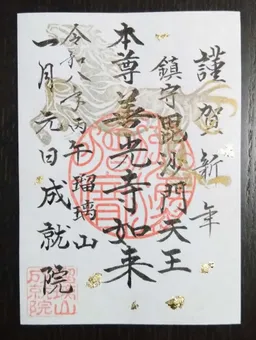 謹賀新年
鎮守毘沙門天王
本尊善光寺如来
令和八年丙午瑠璃山
一月元日成就院